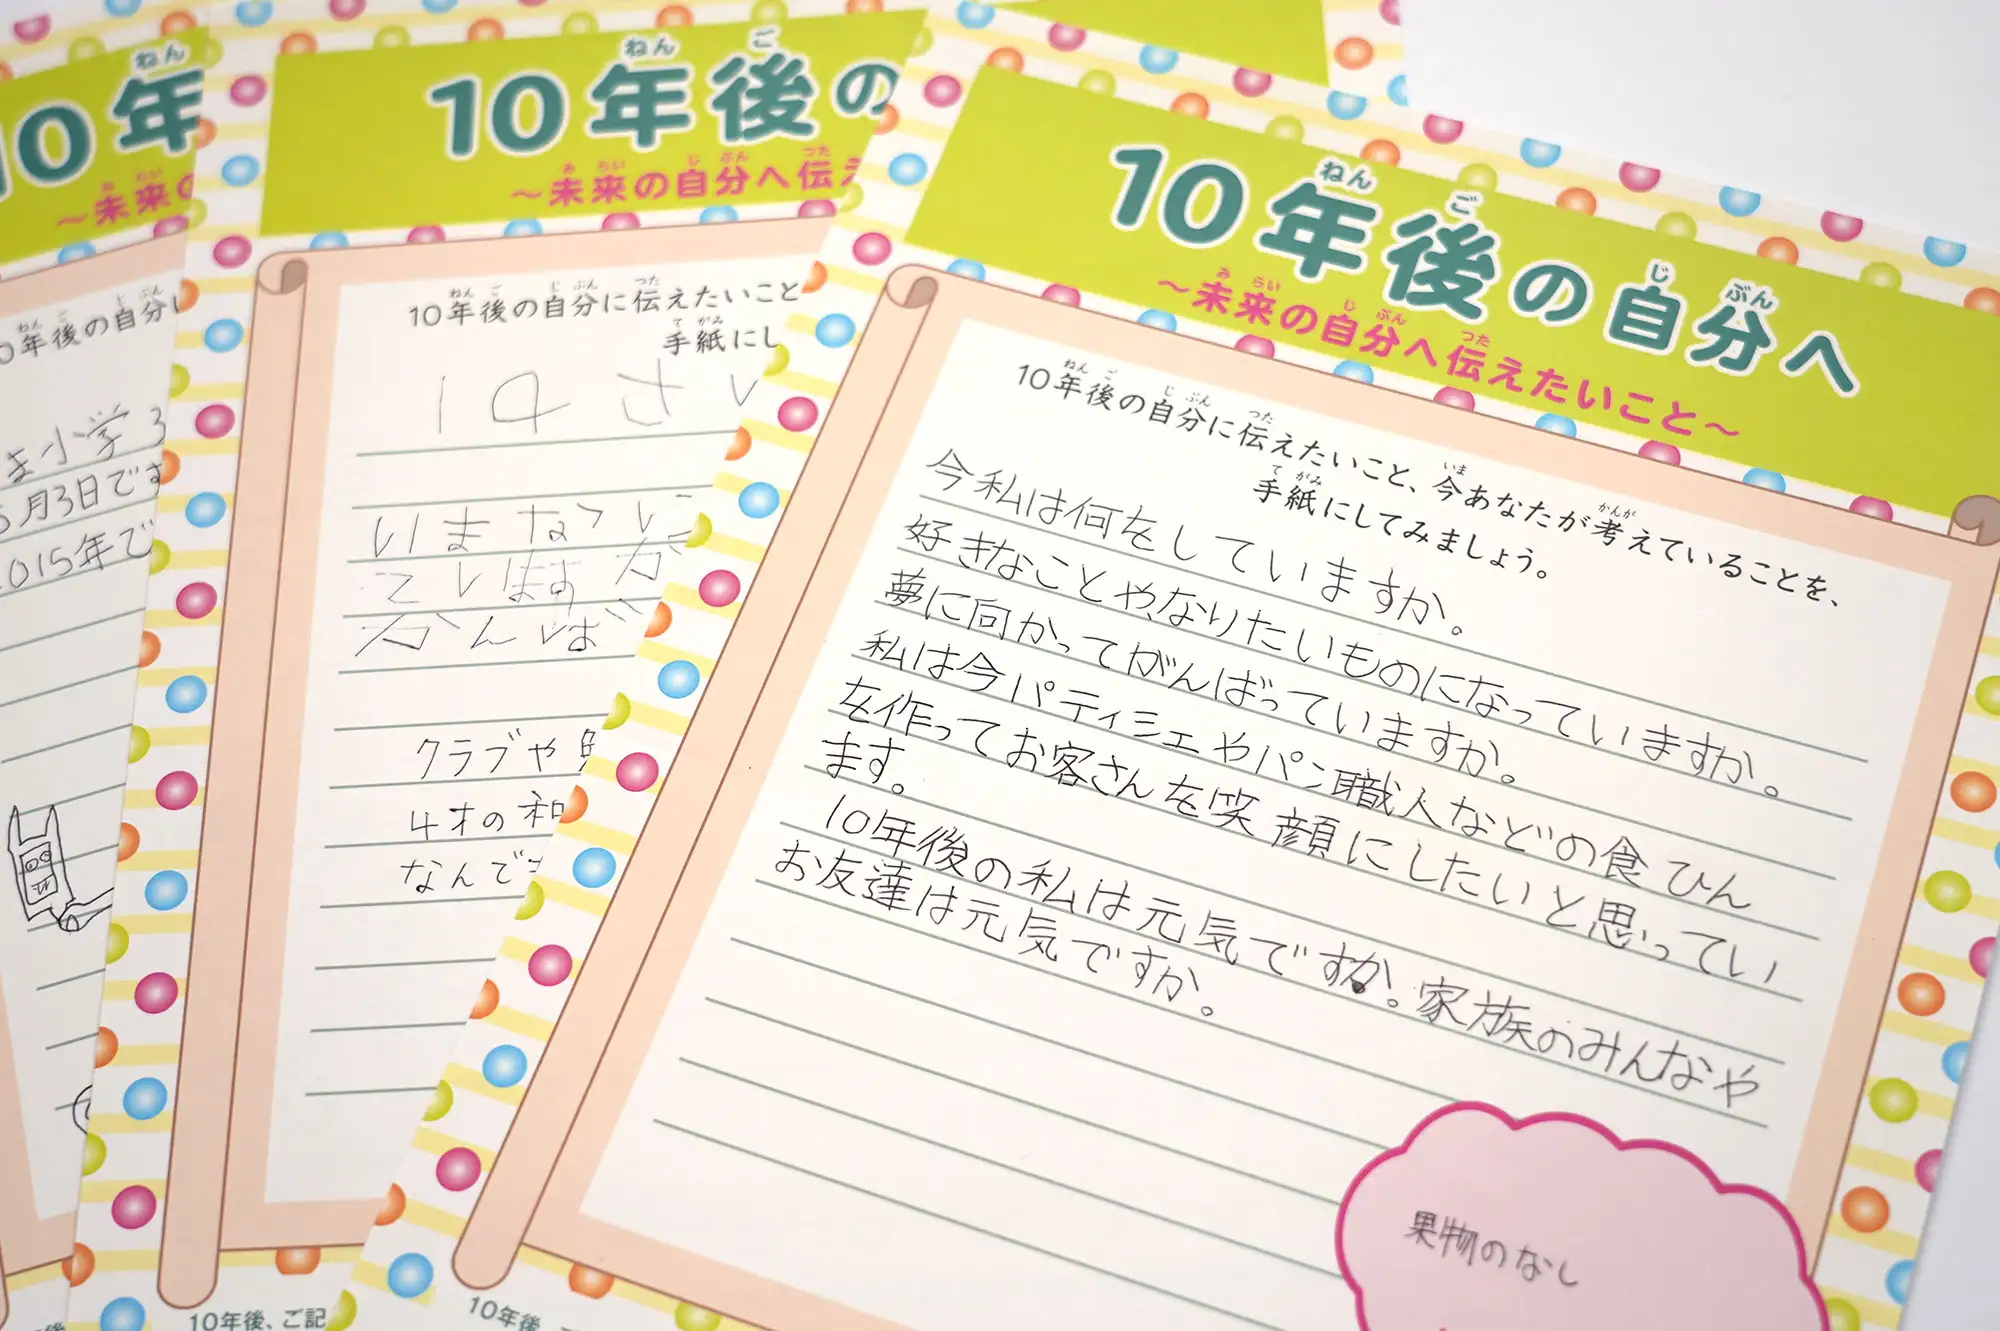 10年
～未来の
10年後の自分に
ま小学3
5月3日です
2015年で
10年後の
～未来の自分へ伝え
10年後の自分に伝えたいこと
手紙にし
14さい
いまなに
ていますか
がんば
クラブや
4才の和
なんでも
10年後、ご記
10年後の自分へ
～未来の自分へ伝えたいこと～
10年後の自分に伝えたいこと、今あなたが考えていることを、
手紙にしてみましょう。
今私は何をしていますか。
好きなことや、なりたいものになっていますか。
夢に向かってがんばっていますか。
私は今パティシェやパン職人などの食ひん
を作ってお客さんを笑顔にしたいと思ってい
ます。
10年後の私は元気ですか。家族のみんなや
お友達は元気ですか。
果物のなし
10年後、